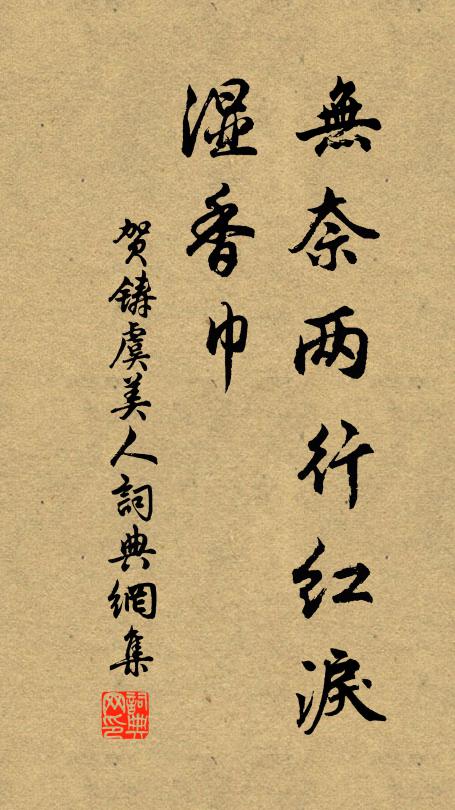 無奈两行红淚
湿香巾
贺鑄虞美人詞典網集
詞典网印